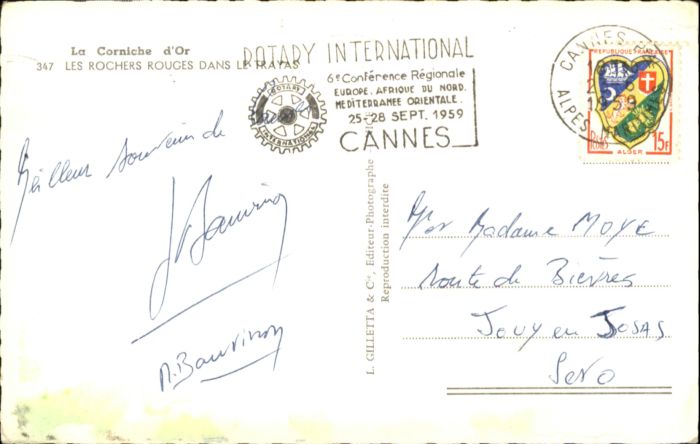 La Corniche d'Or
347 LES ROCHERS ROUGES DANS LE TRAYAS
ROTARY INTERNATIONAL
6e Conférence Régionale
EUROPE. AFRIQUE DU NORD.
MEDITERRANEE ORIENTALE.
25-28 SEPT. 1959
CANNES
ROTARY
INTERNATIONAL
CANNES
ALPES
REPUBLIQUE FRANÇAISE
Postes
15F
ALGER
Meilleur souvenir de
L. GILLETTA & Cie, Editeur-Photographe
Reproduction interdite
Mr Madame MOYE
Route de Bièvres
Jouy en JOSAS